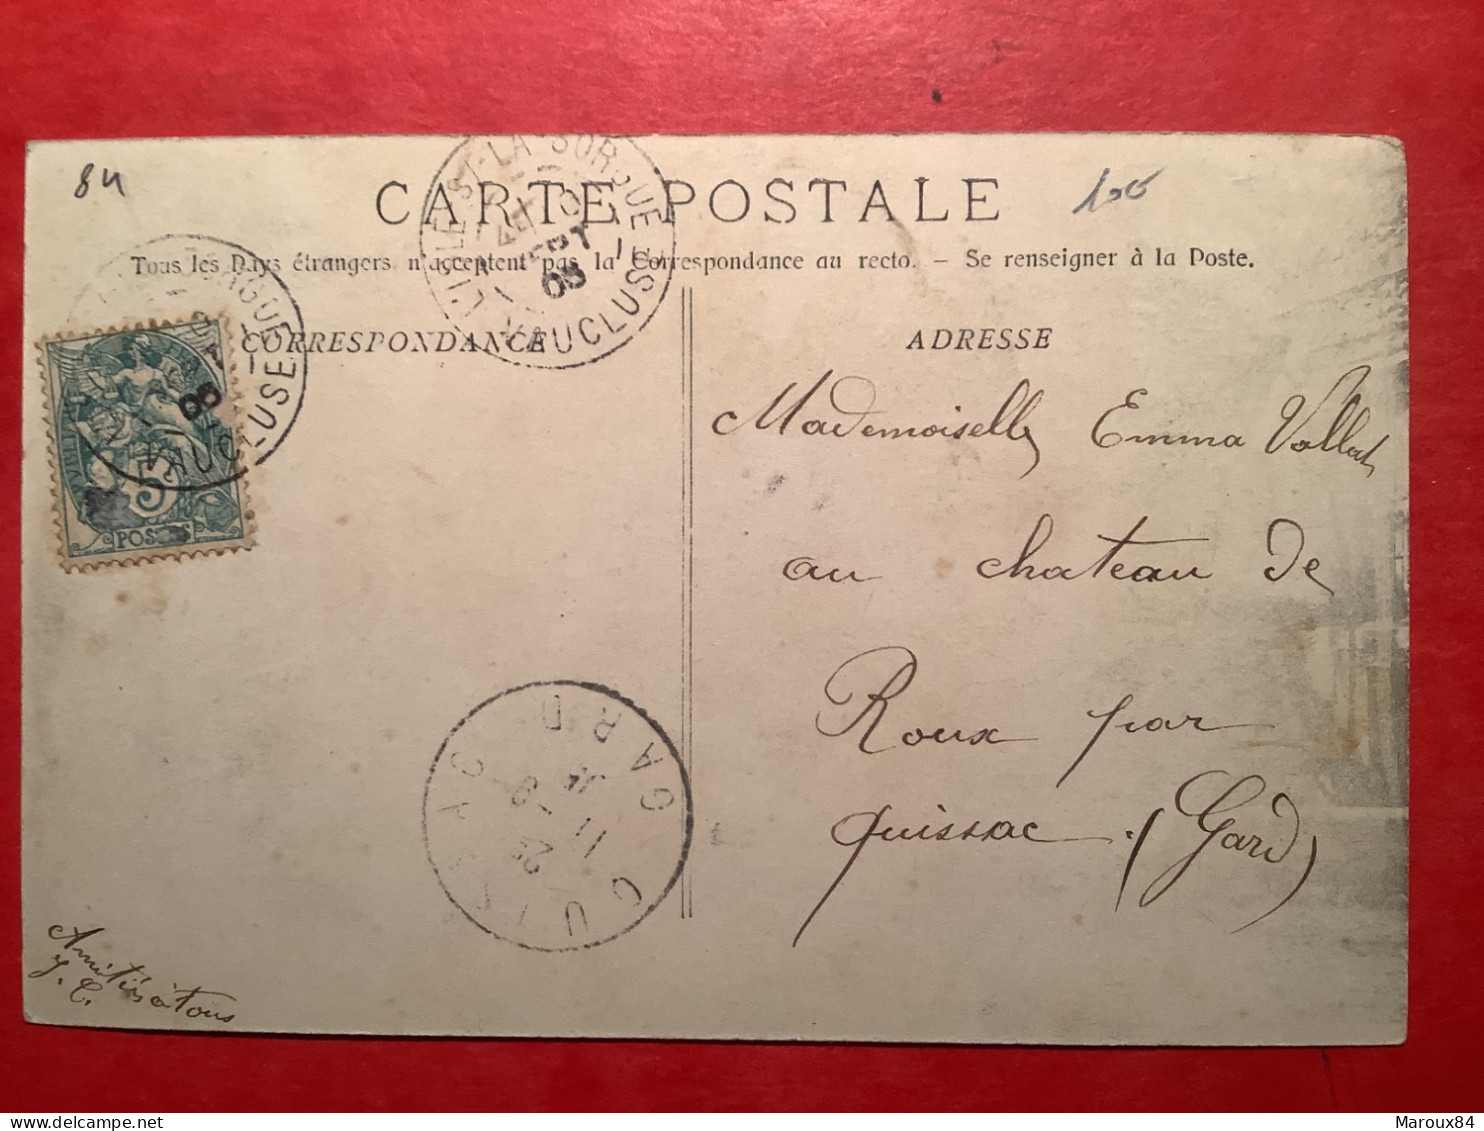 84
100
CARTE POSTALE
Tous les Pays étrangers n'acceptent pas la Correspondance au recto. – Se renseigner à la Poste.
CORRESPONDANCE
ADRESSE
L'ISLE-S-LA-SORGUE
SEPT
05
VAUCLUSE
VAUCLUSE
5
POSTES
Mademoiselle Emma
au chateau de
Roux par
quissac. (Gard)
QUISSAC
GARD
11 -9
Amitiés à tous
J. C.
Maroux84